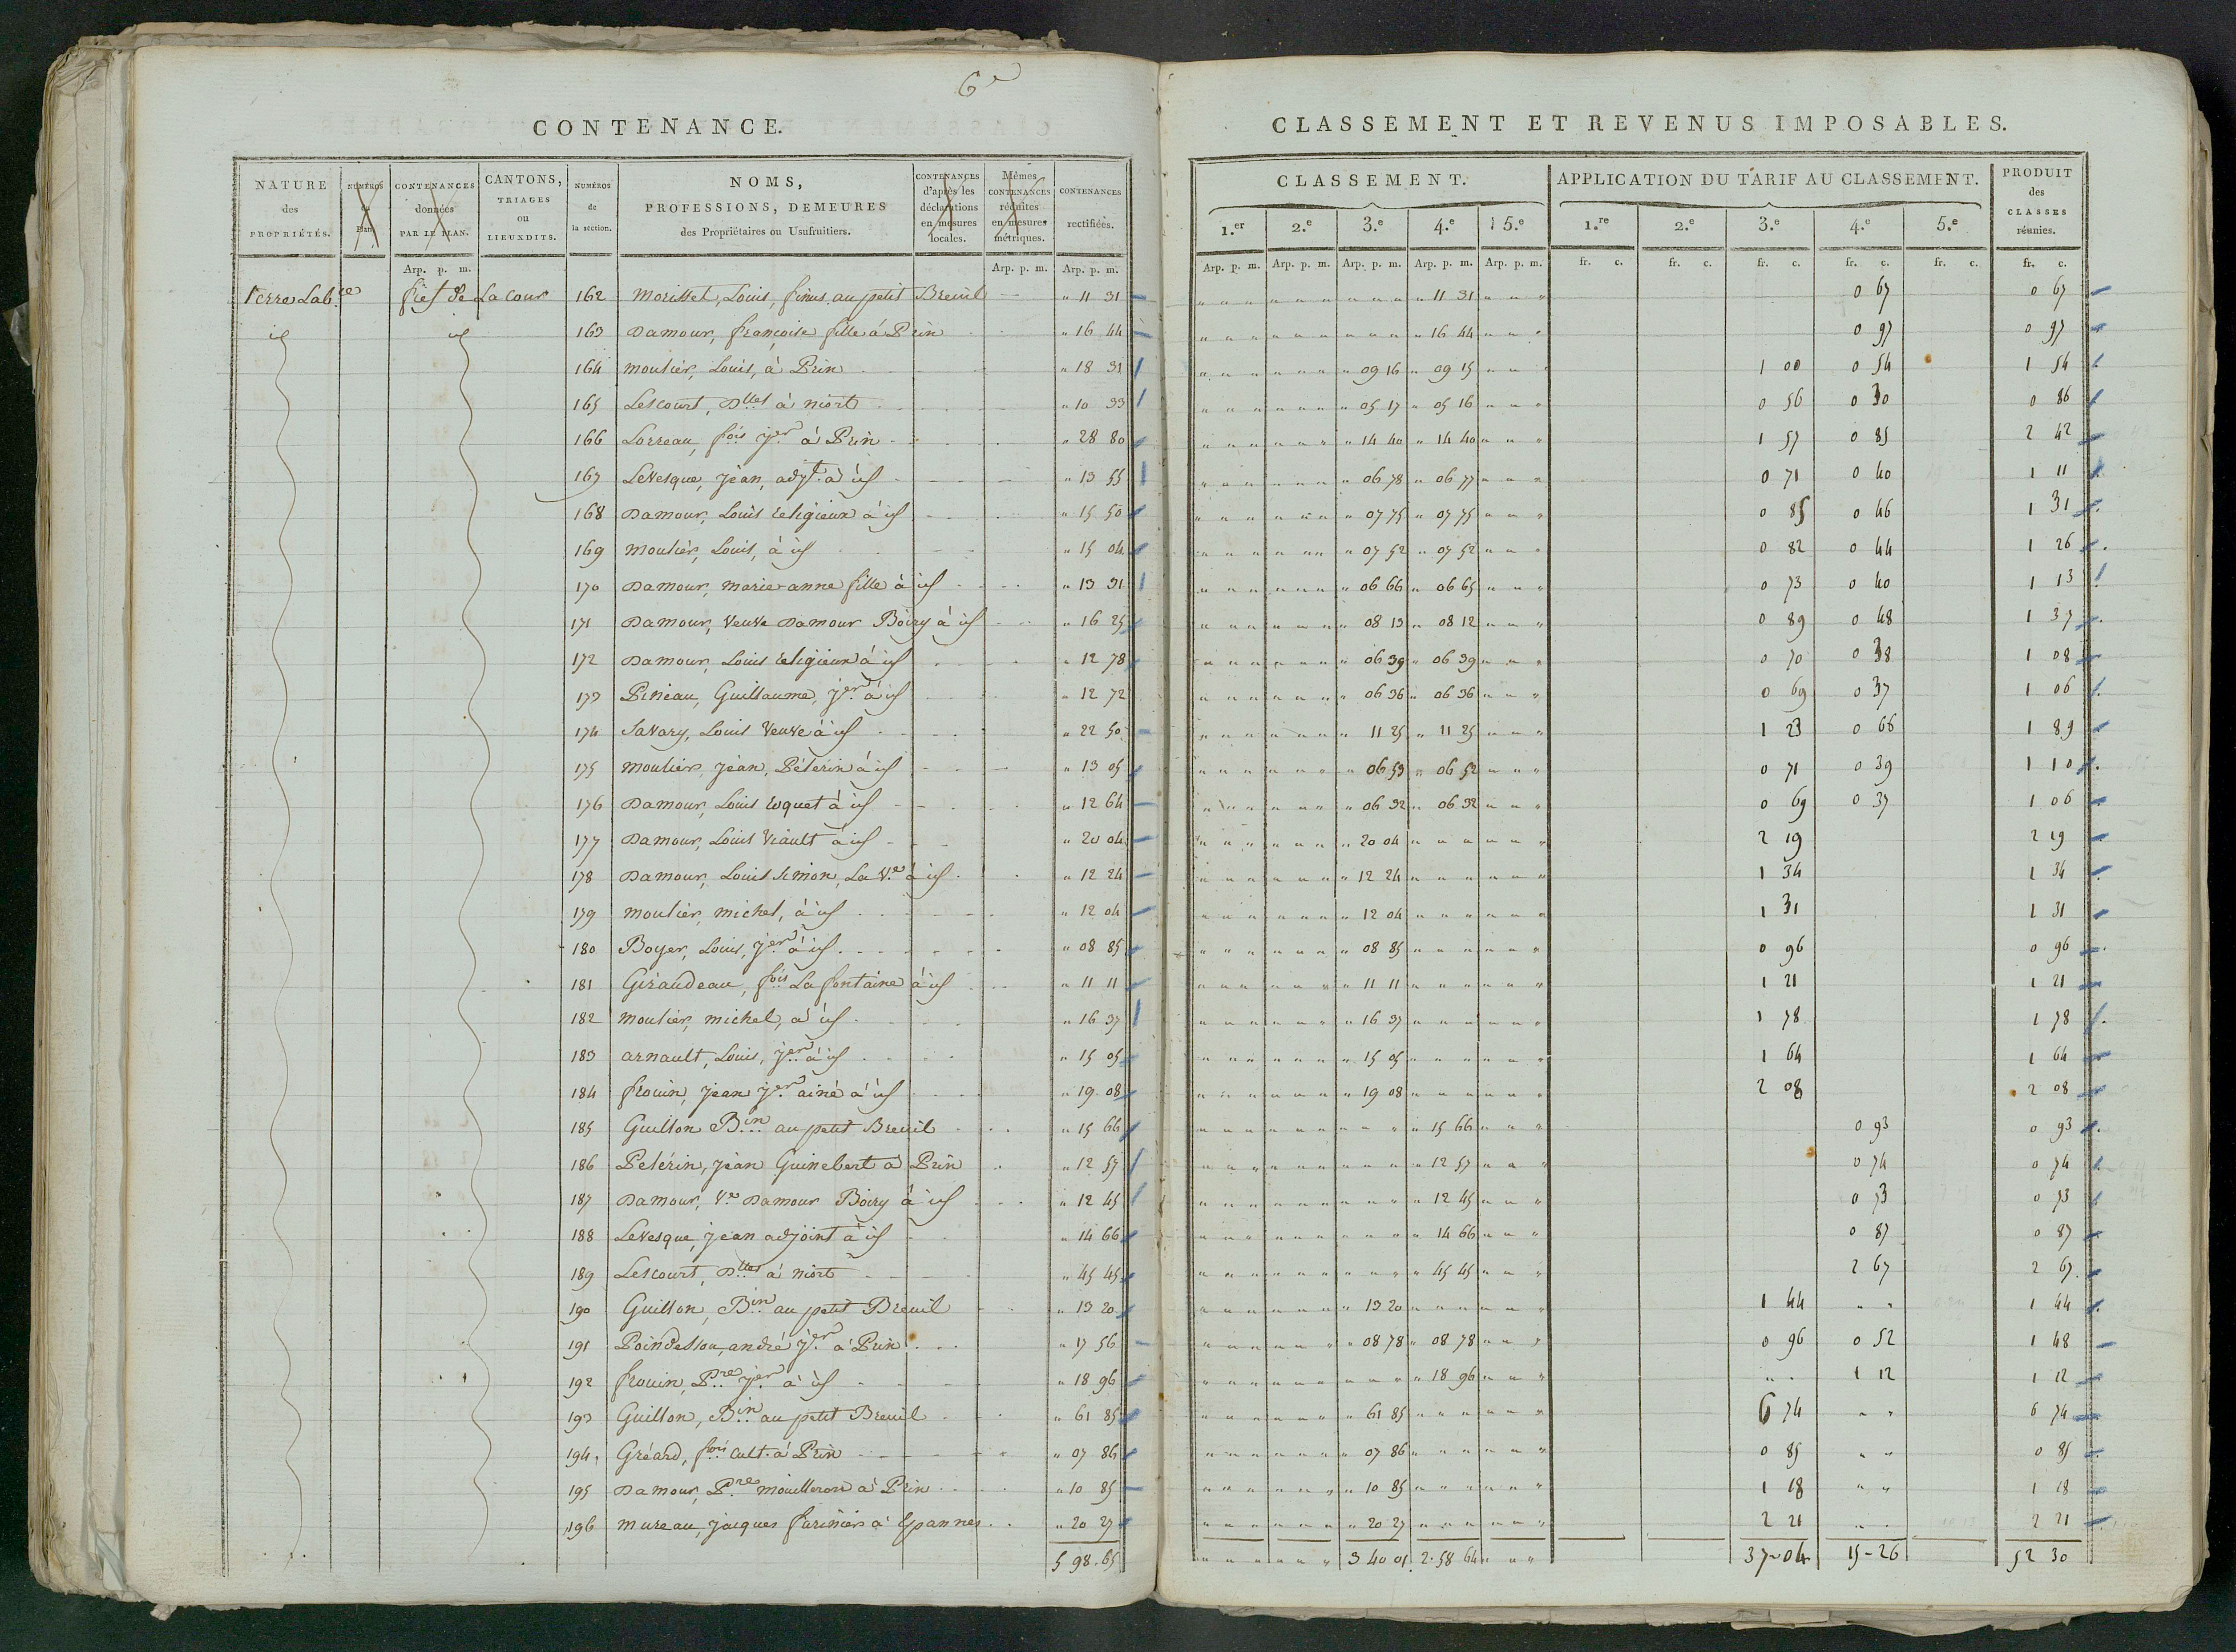 6e
CONTENANCE.
NATURE des PROPRIÉTÉS. NUMÉROS du Plan. CONTENANCES données PAR LE PLAN. CANTONS, TRIAGES OU LIEUXDITS. NUMÉROS de la section. NOMS, PROFESSIONS, DEMEURES des Propriétaires ou Usufruitiers. CONTENANCES d'après les déclarations en mesures locales. Mêmes CONTENANCES réduites en mesures métriques. CONTENANCES rectifiées.
Arp. p. m. Arp. p. m. Arp. p. m.
Terre Lab.ce fief de La Cour 162 Morisset, Louis, finus au petit Breuil " 11 31
id id 163 Damour, françoise fille à Prin " 16 44
164 moulier, Louis, à Prin " 18 31
165 Lescourt, Dlles à niort " 10 33
166 Lorreau, fois jer à Prin " 28 80
167 Levesque, jean, adjt. à id " 13 55
168 Damour, Louis religieux à id " 15 50
169 moulier, Louis, à id " 15 04
170 Damour, marie anne fille à id " 13 31
171 Damour, veuve Damour Boiry à id " 16 25
172 Damour, Louis religieux à id " 12 78
173 Pineau, Guillaume, jer à id " 12 72
174 Savary, Louis veuve à id " 22 50
175 moulier, jean, Pélerin à id " 13 05
176 Damour, Louis roquet à id " 12 64
177 Damour, Louis viault à id " 20 04
178 Damour, Louis Simon, La Ve à id " 12 24
179 moulier, michel, à id " 12 04
180 Boyer, Louis, jer à id " 08 85
181 Giraudeau, fois La fontaine à id " 11 11
182 moulier, michel, à id " 16 37
183 arnault, Louis, jer à id " 15 05
184 frouin, jean jer ainé à id " 19 08
185 Guillon Bin au petit Breuil " 15 66
186 Pelérin, jean Guinebert à Prin " 12 57
187 Damour, Ve Damour Boiry à id " 12 45
188 Levesque, jean adjoint à id " 14 66
189 Lescourt, Dlles à niort " 45 45
190 Guillon, Bin au petit Breuil " 13 20
191 Poindesson, andré jer à Prin " 17 56
192 frouin, Pre jer à id " 18 96
193 Guillon, Bin au petit Breuil " 61 85
194 Gréard, fois cult. à Prin " 07 86
195 Damour, Pre mouilleron à Prin " 10 85
196 mureau, jacques farinier à Epannes " 20 27
5 98 65
CLASSEMENT ET REVENUS IMPOSABLES.
CLASSEMENT. APPLICATION DU TARIF AU CLASSEMENT. PRODUIT des CLASSES réunies.
1.er 2.e 3.e 4.e 5.e 1.re 2.e 3.e 4.e 5.e
Arp. p. m. Arp. p. m. Arp. p. m. Arp. p. m. Arp. p. m. fr. c. fr. c. fr. c. fr. c. fr. c. fr. c.
" 11 31 0 67 0 67
" 16 44 0 97 0 97
" 09 16 " 09 15 1 00 0 54 1 54
" 05 17 " 05 16 0 56 0 30 0 86
" 14 40 " 14 40 1 57 0 85 2 42
" 06 78 " 06 77 0 71 0 40 1 11
" 07 75 " 07 75 0 85 0 46 1 31
" 07 52 " 07 52 0 82 0 44 1 26
" 06 66 " 06 65 0 73 0 40 1 13
" 08 13 " 08 12 0 89 0 48 1 37
" 06 39 " 06 39 0 70 0 38 1 08
" 06 36 " 06 36 0 69 0 37 1 06
" 11 25 " 11 25 1 23 0 66 1 89
" 06 53 " 06 52 0 71 0 39 1 10
" 06 32 " 06 32 0 69 0 37 1 06
" 20 04 2 19 2 19
" 12 24 1 34 1 34
" 12 04 1 31 1 31
" 08 85 0 96 0 96
" 11 11 1 21 1 21
" 16 37 1 78 1 78
" 15 05 1 64 1 64
" 19 08 2 08 2 08
" 15 66 0 93 0 93
" 12 57 0 74 0 74
" 12 45 0 73 0 73
" 14 66 0 87 0 87
" 45 45 2 67 2 67
" 13 20 1 44 " " 1 44
" 08 78 " 08 78 0 96 0 52 1 48
" 18 96 " " 1 12 1 12
" 61 85 6 74 " " 6 74
" 07 86 0 85 " " 0 85
" 10 85 1 18 " " 1 18
" 20 27 2 21 " " 2 21
3 40 01 2 58 64 37-04 15-26 52 30